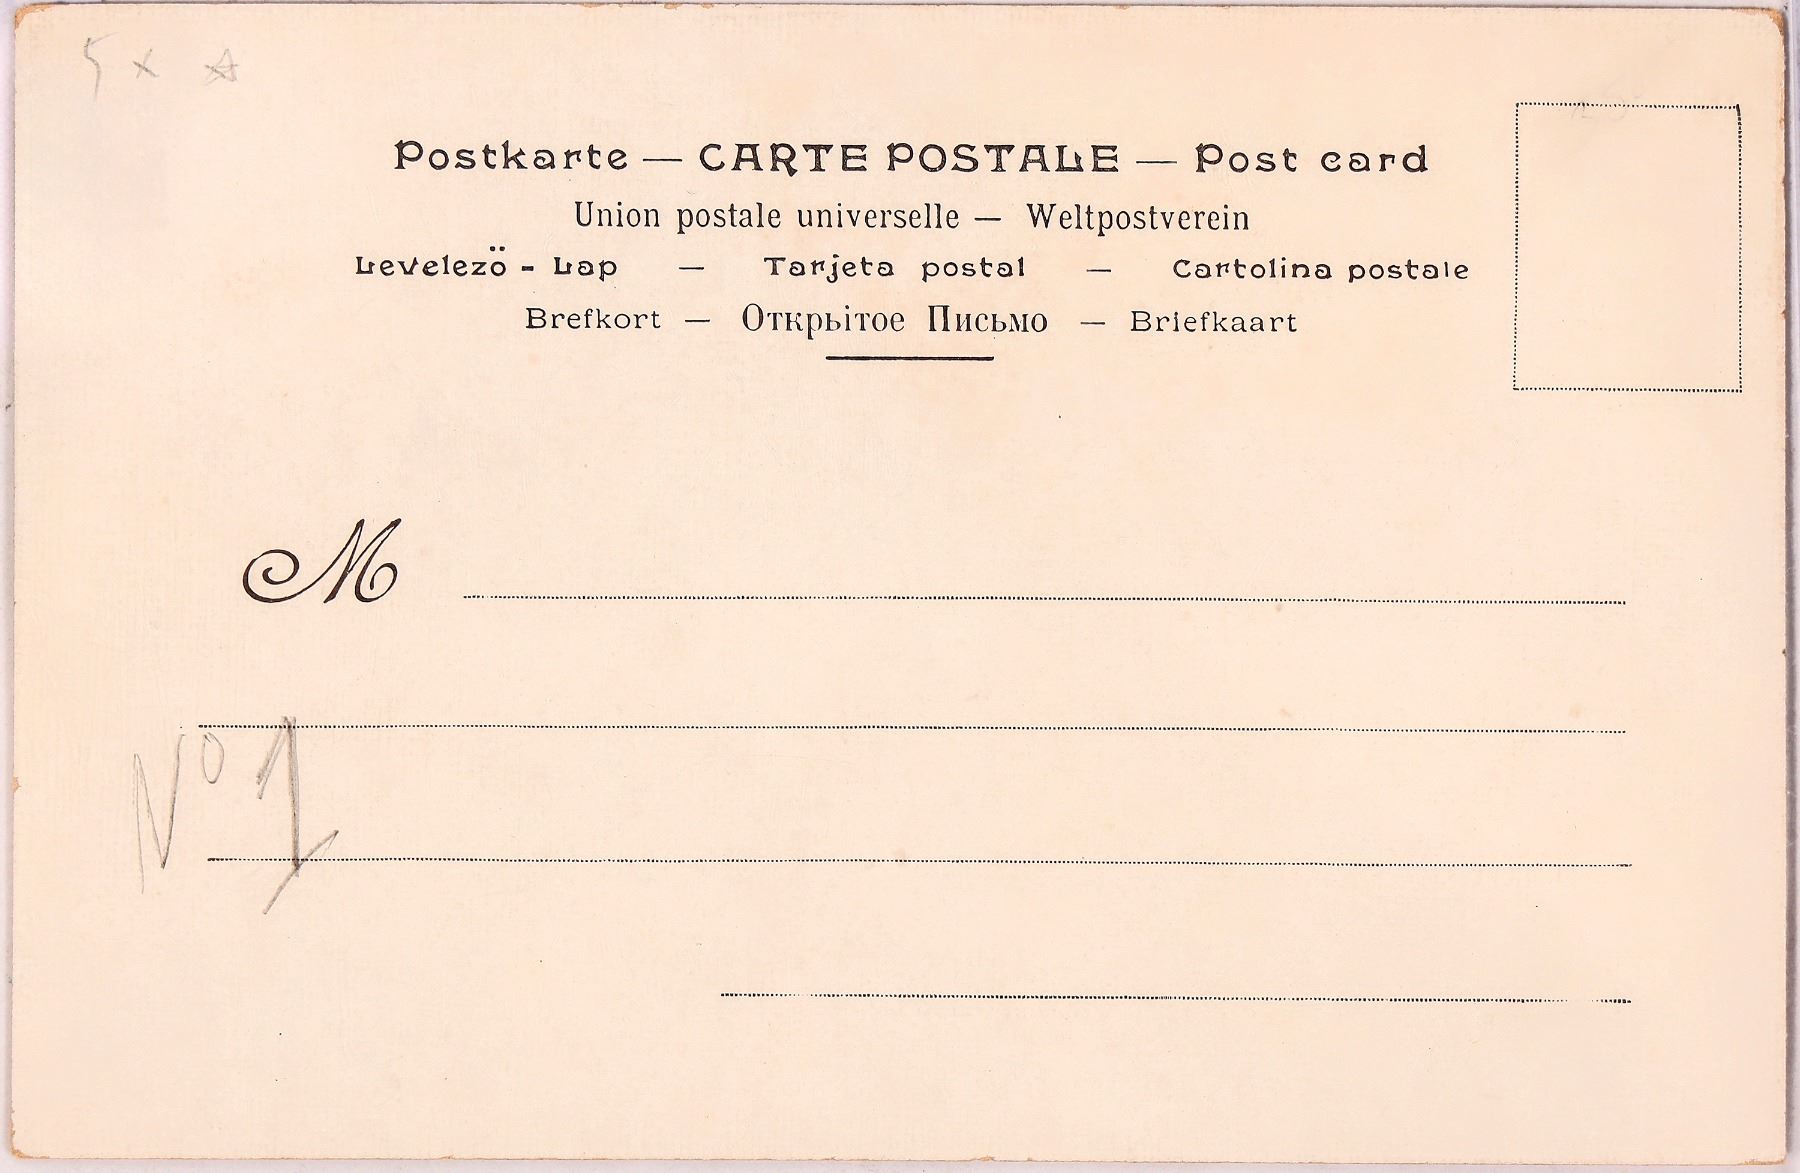 5 x ☆
Postkarte — CARTE POSTALE — Post card
Union postale universelle — Weltpostverein
Levelezö - Lap — Tarjeta postal — Cartolina postale
Brefkort — Открьітое Письмо — Briefkaart
M
Nº 1